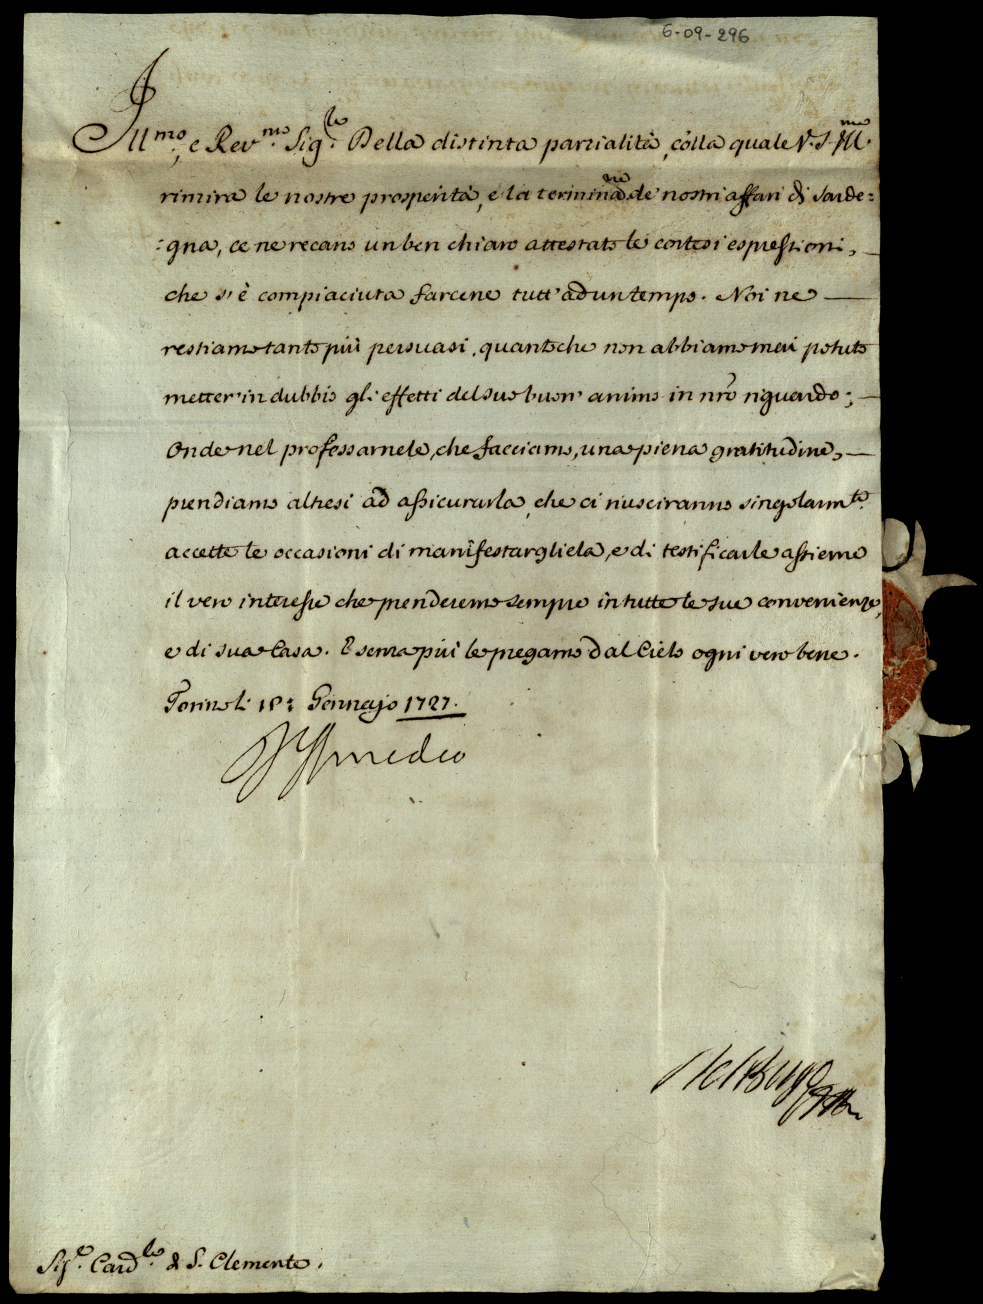 6-09-296
Ill.mo, e Rev.mo Sig.re Della distinta parzialità, colla quale V. S. Ill.ma
rimira le nostre prosperità, e la terminaz.ne de nostri affari di Sarde=
=gna, ce ne recano un ben chiaro attestato le cortesi espressioni,
che s'è compiaciuta farcene tutt'ad un tempo. Noi ne
restiamo tanto più persuasi, quanto che non abbiamo mai potuto
metter'in dubbio gl'effetti del suo buon'animo in nr̃o riguardo;
Onde nel professarnele, che facciamo, una piena gratitudine,
prendiamo altresi ad assicurarla, che ci riusciranno singolarm.te
accette le occasioni di manifestargliela, e di testificarle assieme
il vero interesse che prenderemo sempre in tutte le sue convenienze,
e di sua Casa. E senza più le pregamo dal Cielo ogni vero bene.
Torino li 18: Gennajo 1727.
V Amedeo
Del Borgo
Sig.r Card.le di S. Clemente.